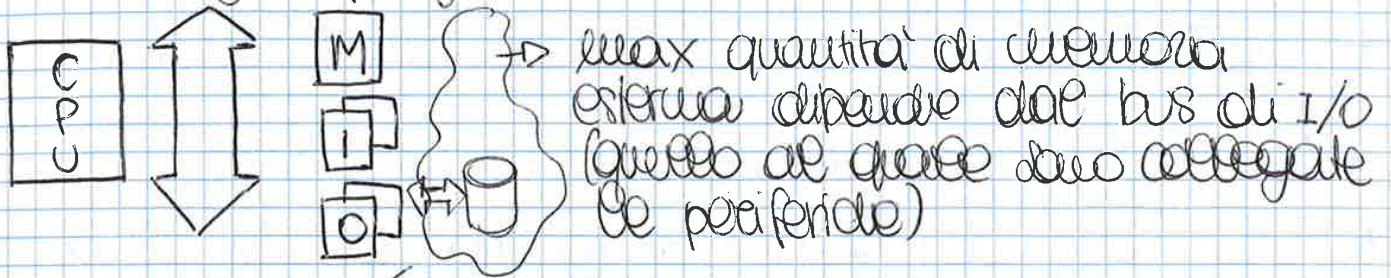 CPU
M
I
O
max quantità di memoria
esterna dipende dal bus di I/O
(quello al quale sono collegate
le periferiche)